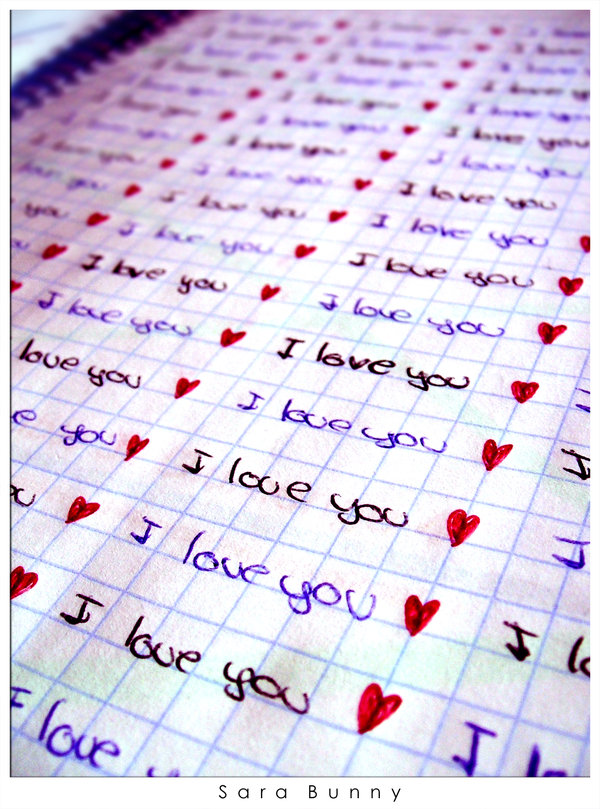 I love you
I love you
I love you
I love you I love you
I love you I love you
I love you I love you
you I love you I love you
I love you I love you
I love you I love you
I love you I love you I
love you I love you I
you I love you I
I love you I
I love you I
I love you
Sara Bunny